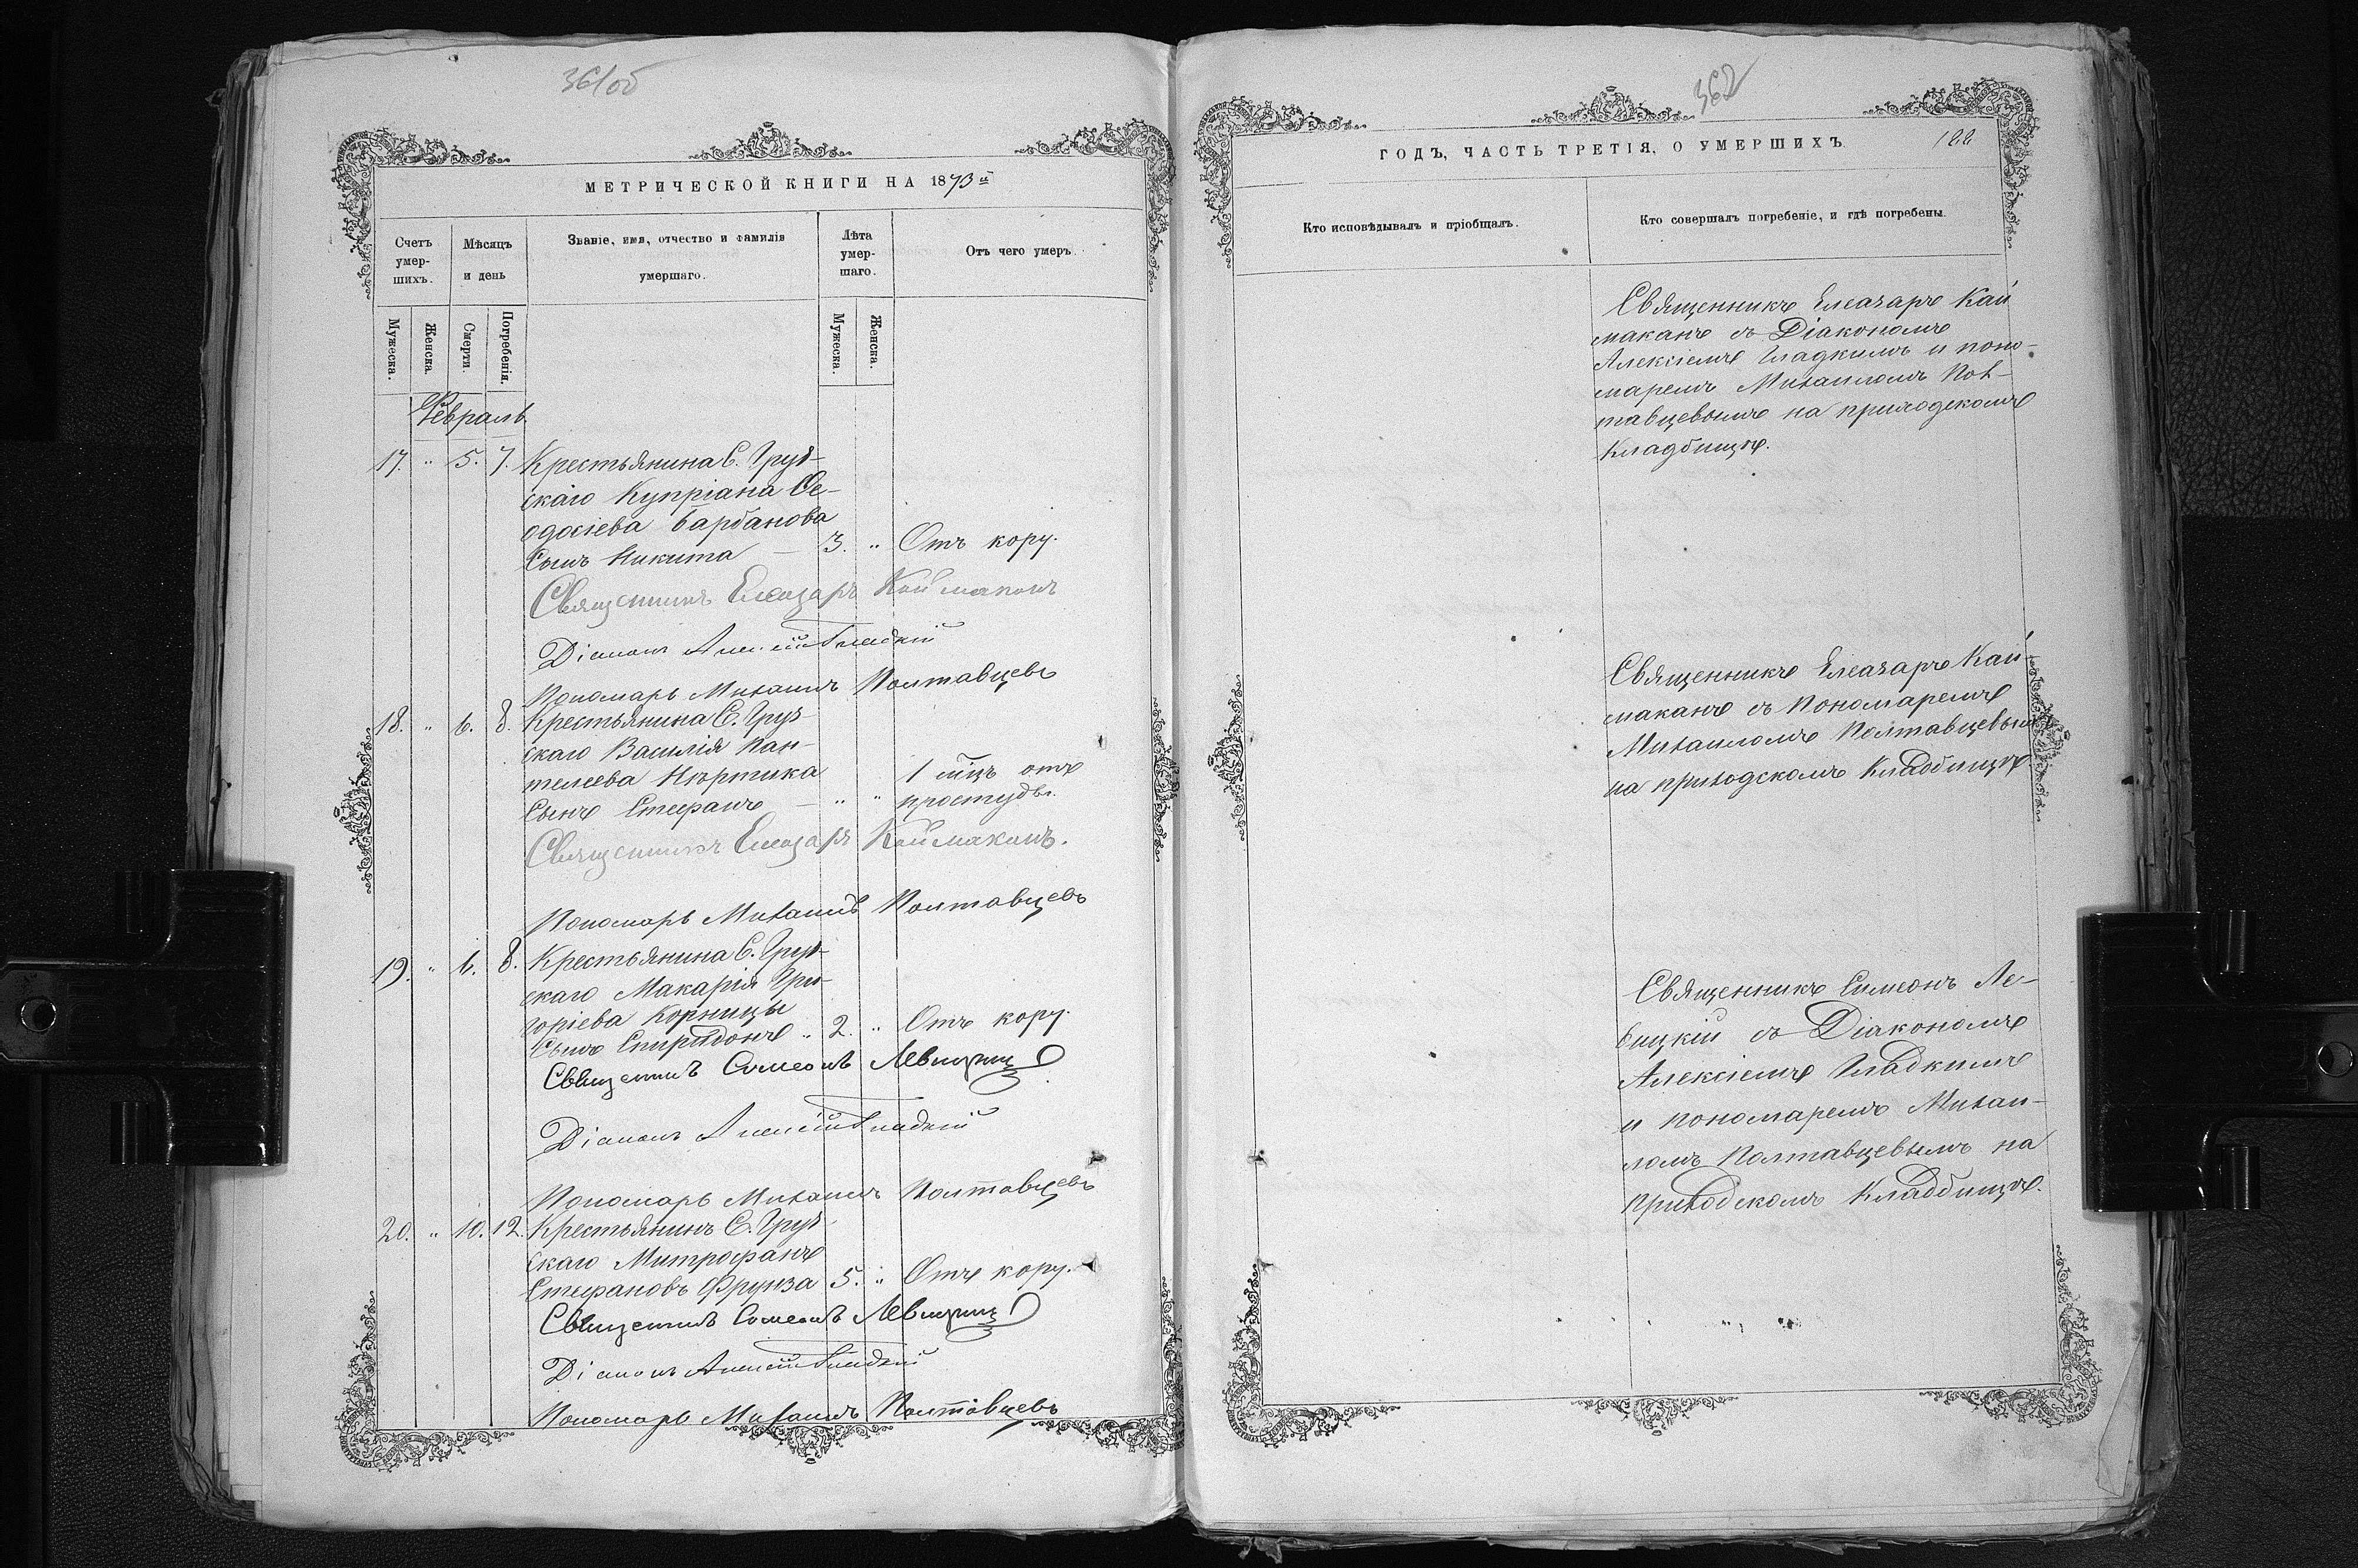 361об
МЕТРИЧЕСКОЙ КНИГИ НА 1873й
Счетъ умер-шихъ.
Мѣсяцъ и день
Званіе, имя, отчество и фамилія умершаго.
Лѣта умер-шаго.
Отъ чего умеръ.
Мужеска.
Женска.
Смерти.
Погребенія.
Мужеска.
Женска.
Февраль.
17. " 5. 7. Крестьянина С. Груз-
скаго Купріана Ѳе-
одосіева Барбанова
Сынъ Никита — 3. " Отъ кору.
Священникъ Елеазаръ Каймаканъ
Діаконъ Алексій Гладкій
Пономарь Михаилъ Полтавцевъ
18. " 6. 8. Крестьянина С. Груз-
скаго Василія Пан-
телеева
Сынъ Стефанъ — " " 1 мцъ отъ
простуды.
Священникъ Елеазаръ Каймаканъ.
Пономарь Михаилъ Полтавцевъ
19. " 6. 8. Крестьянина С. Груз-
скаго Макарія Гри-
горіева Корницы
Сынъ Спиридонъ " 2. " Отъ кору.
Священникъ Симеонъ Левицкій
Діаконъ Алексій Гладкій
Пономарь Михаилъ Полтавцевъ
20. " 10. 12. Крестьянинъ С. Груз-
скаго Митрофанъ
Стефановъ Фрунза 5. " Отъ кору.
Священникъ Симеонъ Левицкій
Діаконъ Алексій Гладкій
Пономарь Михаилъ Полтавцевъ
362
ГОДЪ, ЧАСТЬ ТРЕТІЯ, О УМЕРШИХЪ.
188
Кто исповѣдывалъ и пріобщалъ.
Кто совершалъ погребеніе, и гдѣ погребены.
Священникъ Елеазаръ Кай-
маканъ съ Діакономъ
Алексіемъ Гладкимъ и поно-
маремъ Михаиломъ Пол-
тавцевымъ на приходскомъ
кладбищѣ.
Священникъ Елеазаръ Кай-
маканъ съ Пономаремъ
Михаиломъ Полтавцевымъ
на приходскомъ кладбищѣ.
Священникъ Симеонъ Ле-
вицкій съ Діакономъ
Алексіемъ Гладкимъ
и пономаремъ Михаи-
ломъ Полтавцевымъ на
приходскомъ кладбищѣ.